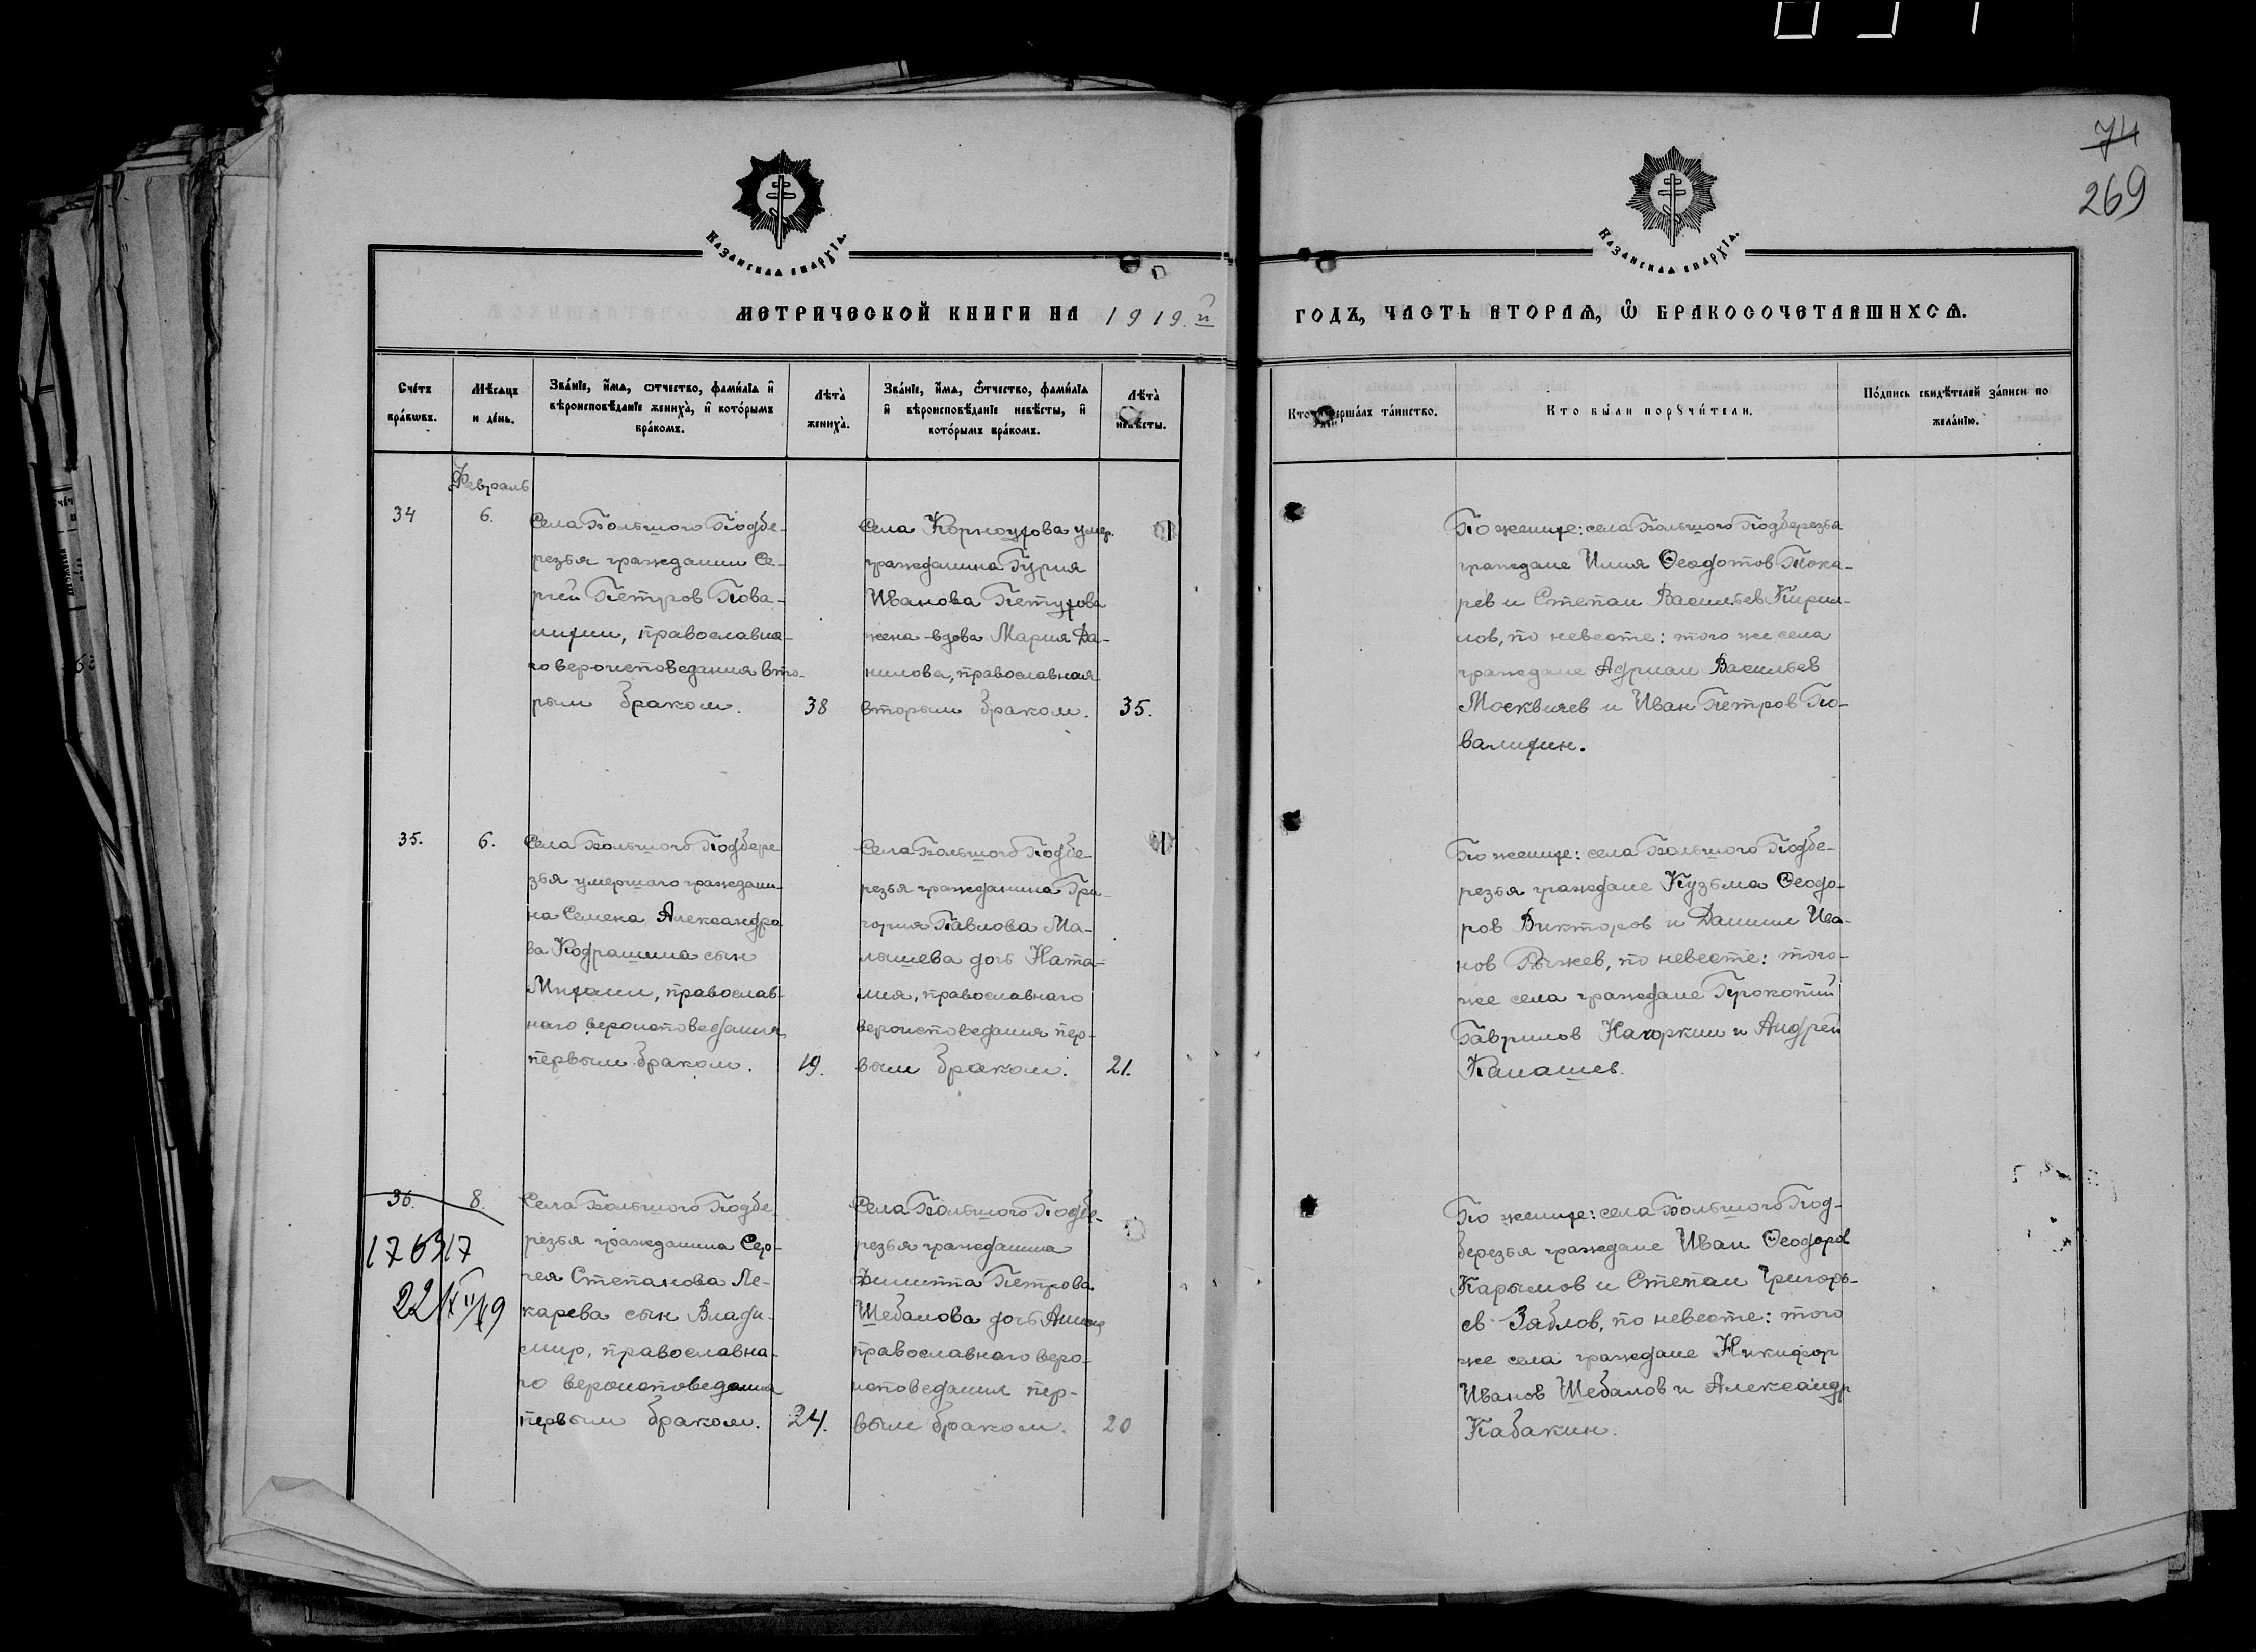 74
269
Казанская епархїа.
Казанская епархїа.
МЕТРИЧЕСКОЙ КНИГИ НА 1919.й
ГОДЪ, ЧАСТЬ ВТОРАЯ, Ѿ БРАКОСОЧЕТАВШИХСЯ.
Сче́тъ
бра́кѡвъ.
Мѣ́сяцъ
и де́нь.
Зва́нїе, и҆́мя, ѻ҆́тчество, фами́лїа и҆
вѣроисповѣ́данїе жениха̀, и҆ кото́рымъ
бра́комъ.
Лѣта̀
жениха̀.
Зва́нїе, и҆́мя, ѻ҆́тчество, фами́лїа
и҆ вѣроисповѣ́данїе невѣ́сты, и҆
кото́рымъ бра́комъ.
Лѣта̀
невѣ́сты.
Кто̀ соверша́лъ та́инство.
Кто̀ бы́ли порꙋчи́тели.
По́дпись свидѣ́телей за́писи по
жела́нїю.
Февраль
34
6.
Села Большого Подбе-
резья гражданин Се-
ргей Петров Пова-
лихин, православна-
го вероисповедания вто-
рым браком.
38
Села Корноухова умер.
гражданина Гурия
Иванова Петухова
жена-вдова Мария Да-
нилова, православная
вторым браком.
35.
По женихе: села Большого Подберезья
граждане Илия Феодотов Тока-
рев и Степан Васильев Кирил-
лов, по невесте: того же села
граждане Адриан Васильев
Москвичев и Иван Петров По-
валихин.
35.
6.
Села Большого Подбере
зья умершаго граждани-
на Семена Александро
ва Кодрашина сын
Михаил, православ-
наго вероисповедания
первым браком.
19.
Села Большого Подбе-
резья гражданина Гри-
гория Павлова Ма-
лышева дочь Ната-
лия, православнаго
вероисповедания пер-
вым браком.
21.
По женихе: села Большого Подбе-
резья граждане Кузьма Феодо-
ров Викторов и Даниил Ива-
нов Рыжев, по невесте: того-
же села граждане Прокопий
Гаврилов Нагоркин и Андрей
Канашев.
36.
8.
17637
22/XII/19
Села Большого Подбе
резья гражданина Сер-
гея Степанова Ле-
карева сын Влади-
мир, православна-
го вероисповедания
первым браком.
24.
Села Большого Подбе-
резья гражданина
Филиппа Петрова
Шебалова дочь Анна
православнаго веро-
исповедания пер-
вым браком.
20
По женихе: села Большого Под-
березья граждане Иван Феодоров
Карымов и Степан Григорь-
ев Зяблов, по невесте: того
же села граждане Никифор
Иванов Шебалов и Александр
Кабакин.